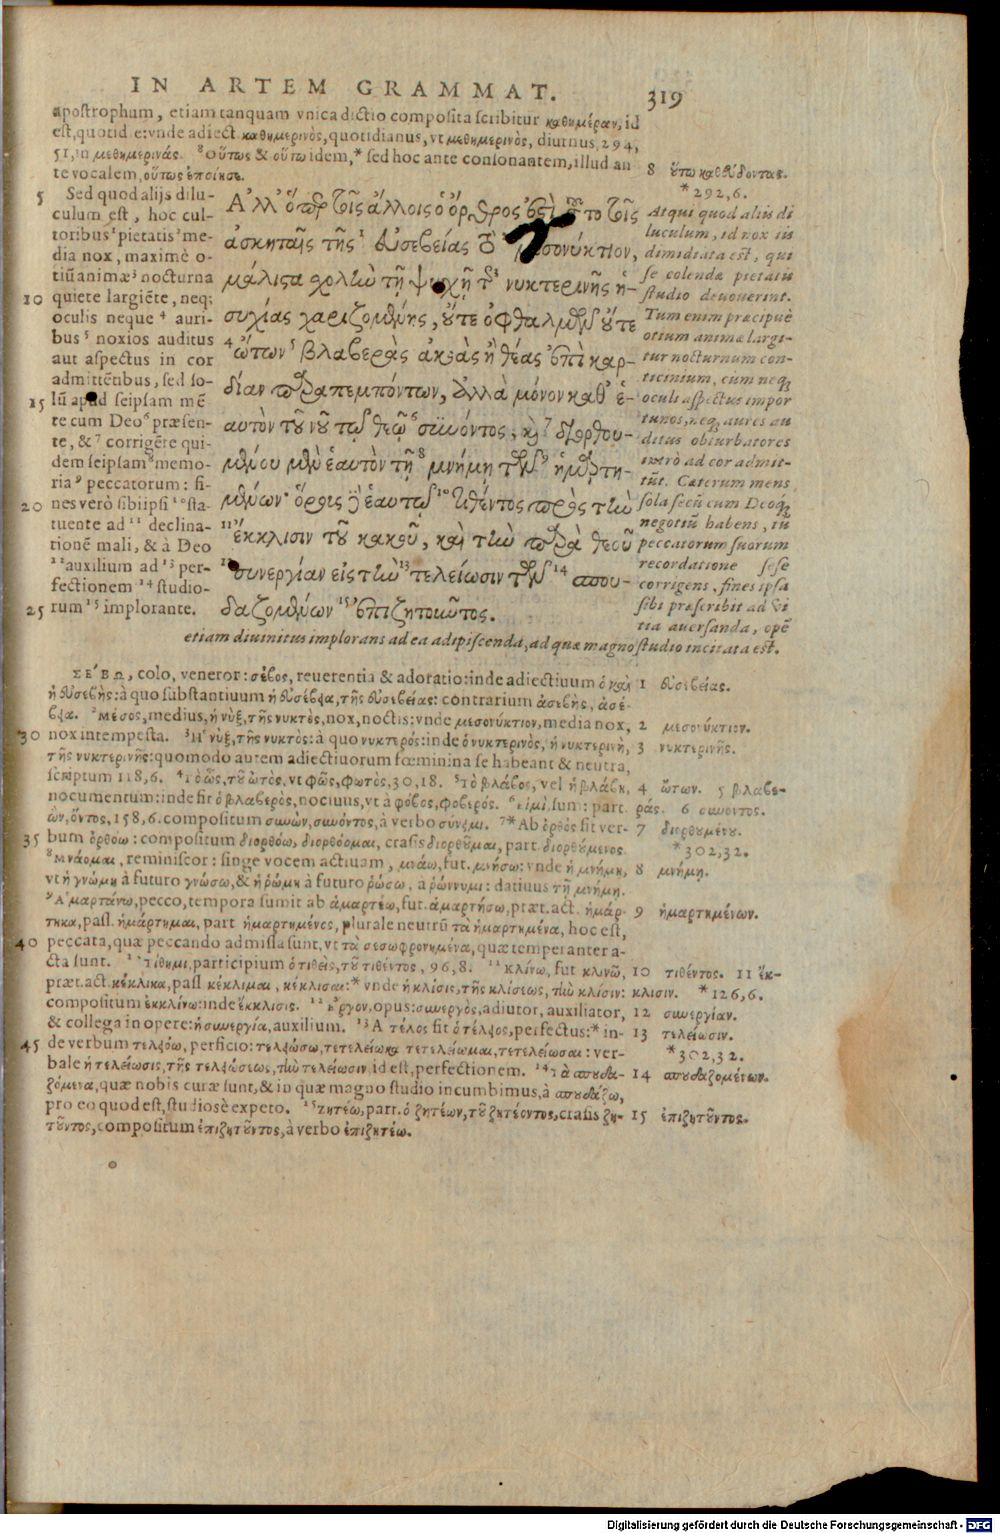 IN ARTEM GRAMMAT.
319
apostrophum, etiam tanquam vnica dictio composita scribitur καθημέραν, id
est, quotidie: vnde adiect. καθημερινὸς, quotidianus, vt μεθημερινὸς, diurnus, 294,
51, in μεθημερινάς. ⁸Οὕτως & οὕτω idem, * sed hoc ante consonantem, illud an
te vocalem, οὕτως ἐποίησε.
8 οὕτω καθεύδοντας.
* 292, 6.
5
Sed quod alijs dilu-
culum est, hoc cul-
toribus ¹pietatis ²me-
dia nox, maximè o-
tiũ animæ ³nocturna
10
quiete largiẽte, neq;
oculis neque ⁴ auri-
bus ⁵ noxios auditus
aut aspectus in cor
admittẽtibus, sed so-
15
lũ apud seipsam mẽ
te cum Deo ⁶ præsen-
te, & ⁷ corrigẽte qui-
dem seipsam ⁸memo-
ria ⁹ peccatorum: fi-
20
nes verò sibiipsi ¹⁰sta-
tuente ad ¹¹ declina-
tionẽ mali, & à Deo
¹²auxilium ad ¹³ per-
fectionem ¹⁴ studio-
25
rum ¹⁵ implorante.
Ἀλλ' ὅπερ τοῖς ἄλλοις ὁ ὄρθρος ἐστὶ, τοῦτο τοῖς
ἀσκηταῖς τῆς ¹ εὐσεβείας τὸ ² μεσονύκτιον,
μάλιστα σχολὴν τῇ ψυχῇ τῆς ³ νυκτερινῆς ἡ-
συχίας χαριζομένης, οὔτε ὀφθαλμῶν οὔτε
⁴ ὤτων ⁵ βλαβερὰς ἀκοὰς ἢ θέας ἐπὶ καρ-
δίαν παραπεμπόντων, ἀλλὰ μόνον καθ' ἑ-
αυτὸν τοῦ νοῦ τῷ θεῷ ⁶ συνόντος, καὶ ⁷ διορθου-
μένου μὲν ἑαυτὸν τῇ ⁸ μνήμῃ τῶν ⁹ ἡμαρτη-
μένων· ὅρους δὲ ἑαυτῷ ¹⁰ τιθέντος πρὸς τὴν
¹¹ ἔκκλισιν τοῦ κακοῦ, καὶ τὴν παρὰ θεοῦ
¹² συνεργίαν εἰς τὴν ¹³ τελείωσιν τῶν ¹⁴ σπου-
δαζομένων ¹⁵ ἐπιζητοῦντος.
Atqui quod aliis di
luculum, id nox iis
dimidiata est, qui
se colendæ pietatis
studio devoverint.
Tum enim præcipuè
otium animæ largi-
tur nocturnum con-
ticinium, cum neq;
oculi aspectus impor
tunos, neq; aures au
ditus obturbatores
intrò ad cor admit-
tũt. Cæterum mens
sola secũ cum Deoq;
negotiũ habens, tũ
peccatorum suorum
recordatione sese
corrigens, fines ipsa
sibi præscribit ad vi
tia aversanda, opẽ
etiam divinitus implorans ad ea adipiscenda, ad quæ magno studio incitata est.
ΣΕΒΩ, colo, veneror: σέβος, reuerentia & adoratio: inde adiectiuum ὁ καὶ
ἡ εὐσεβής: à quo substantiuum ἡ εὐσέβεια, τῆς εὐσεβείας: contrarium ἀσεβής, ἀσέ-
βεια. ²Μέσος, medius, ἡ νὺξ, τῆς νυκτὸς, nox, noctis: vnde μεσονύκτιον, media nox,
30 nox intempesta. ³Ἡ νὺξ, τῆς νυκτὸς: à quo νυκτερός: inde ὁ νυκτερινὸς, ἡ νυκτερινὴ,
τῆς νυκτερινῆς: quomodo autem adiectiuorum fœminina se habeant & neutra,
scriptum 118, 6. ⁴Τὸ ὦς, τοῦ ὠτὸς, vt φῶς, φωτὸς, 30, 18. ⁵Τὸ βλάβος, vel ἡ βλάβη,
nocumentum: inde fit ὁ βλαβερὸς, nociuus, vt à φόβος, φοβερός. ⁶εἰμὶ, sum: part.
ὢν, ὄντος, 158, 6. compositum συνὼν, συνόντος, à verbo σύνειμι. ⁷*Ab ὀρθὸς fit ver-
35 bum ὀρθόω: compositum διορθόω, διορθόομαι, crasis διορθοῦμαι, part. διορθούμενος.
⁸Μνάομαι, reminiscor: finge vocem actiuam, μνάω, fut. μνήσω: vnde ἡ μνήμη,
vt ἡ γνώμη à futuro γνώσω, & ἡ ῥώμη à futuro ῥώσω, à ῥώννυμι: datiuus τῇ μνήμῃ.
⁹Ἁμαρτάνω, pecco, tempora sumit ab ἁμαρτέω, fut. ἁμαρτήσω, præt. act. ἡμάρ-
τηκα, pass. ἡμάρτημαι, part ἡμαρτημένος, plurale neutrũ τὰ ἡμαρτημένα, hoc est,
40 peccata, quæ peccando admissa sunt, vt τὰ σεσωφρονημένα, quæ temperantera-
cta sunt. ¹⁰Τίθημι, participium ὁ τιθεὶς, τοῦ τιθέντος, 96, 8. ¹¹ Κλίνω, fut κλινῶ,
præt. act. κέκλικα, pass κέκλιμαι, κέκλισαι: * vnde ἡ κλίσις, τῆς κλίσεως, τὴν κλίσιν:
compositum ἐκκλίνω: inde ἔκκλισις. ¹² Ἔργον, opus: συνεργὸς, adiutor, auxiliator,
& collega in opere: ἡ συνεργία, auxilium. ¹³Α τέλος fit ὁ τέλειος, perfectus: * in-
45 de verbum τελειόω, perficio: τελειώσω, τετελείωκα τετελείωμαι, τετελείωσαι: ver-
bale ἡ τελείωσις, τῆς τελειώσεως, τὴν τελείωσιν id est, perfectionem. ¹⁴Τὰ σπουδα-
ζόμενα, quæ nobis curæ sunt, & in quæ magno studio incumbimus, à σπουδάζω,
pro eo quod est, studiosè expeto. ¹⁵Ζητέω, part. ὁ ζητέων, τοῦ ζητέοντος, crasis ζη-
τοῦντος, compositum ἐπιζητοῦντος, à verbo ἐπιζητέω.
1 εὐσεβείας.
2 μεσονύκτιον.
3 νυκτερινῆς.
4 ὤτων. 5 βλαβε-
ράς. 6 συνόντος.
7 διορθουμένου.
* 302, 32.
8 μνήμῃ.
9 ἡμαρτημένων.
10 τιθέντος. 11 ἔκ-
κλισιν. * 126, 6.
12 συνεργίαν.
13 τελείωσιν.
* 302, 32.
14 σπουδαζομένων.
15 ἐπιζητοῦντος.
Digitalisierung gefördert durch die Deutsche Forschungsgemeinschaft - DFG